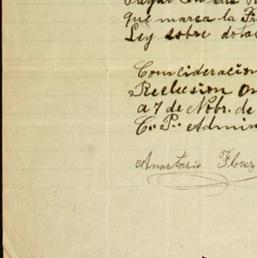 que marca la
Ley sobre
Consideracion
Reclusion
a 7 de Nobr. de
C. P. Admin
Anastasio Florez